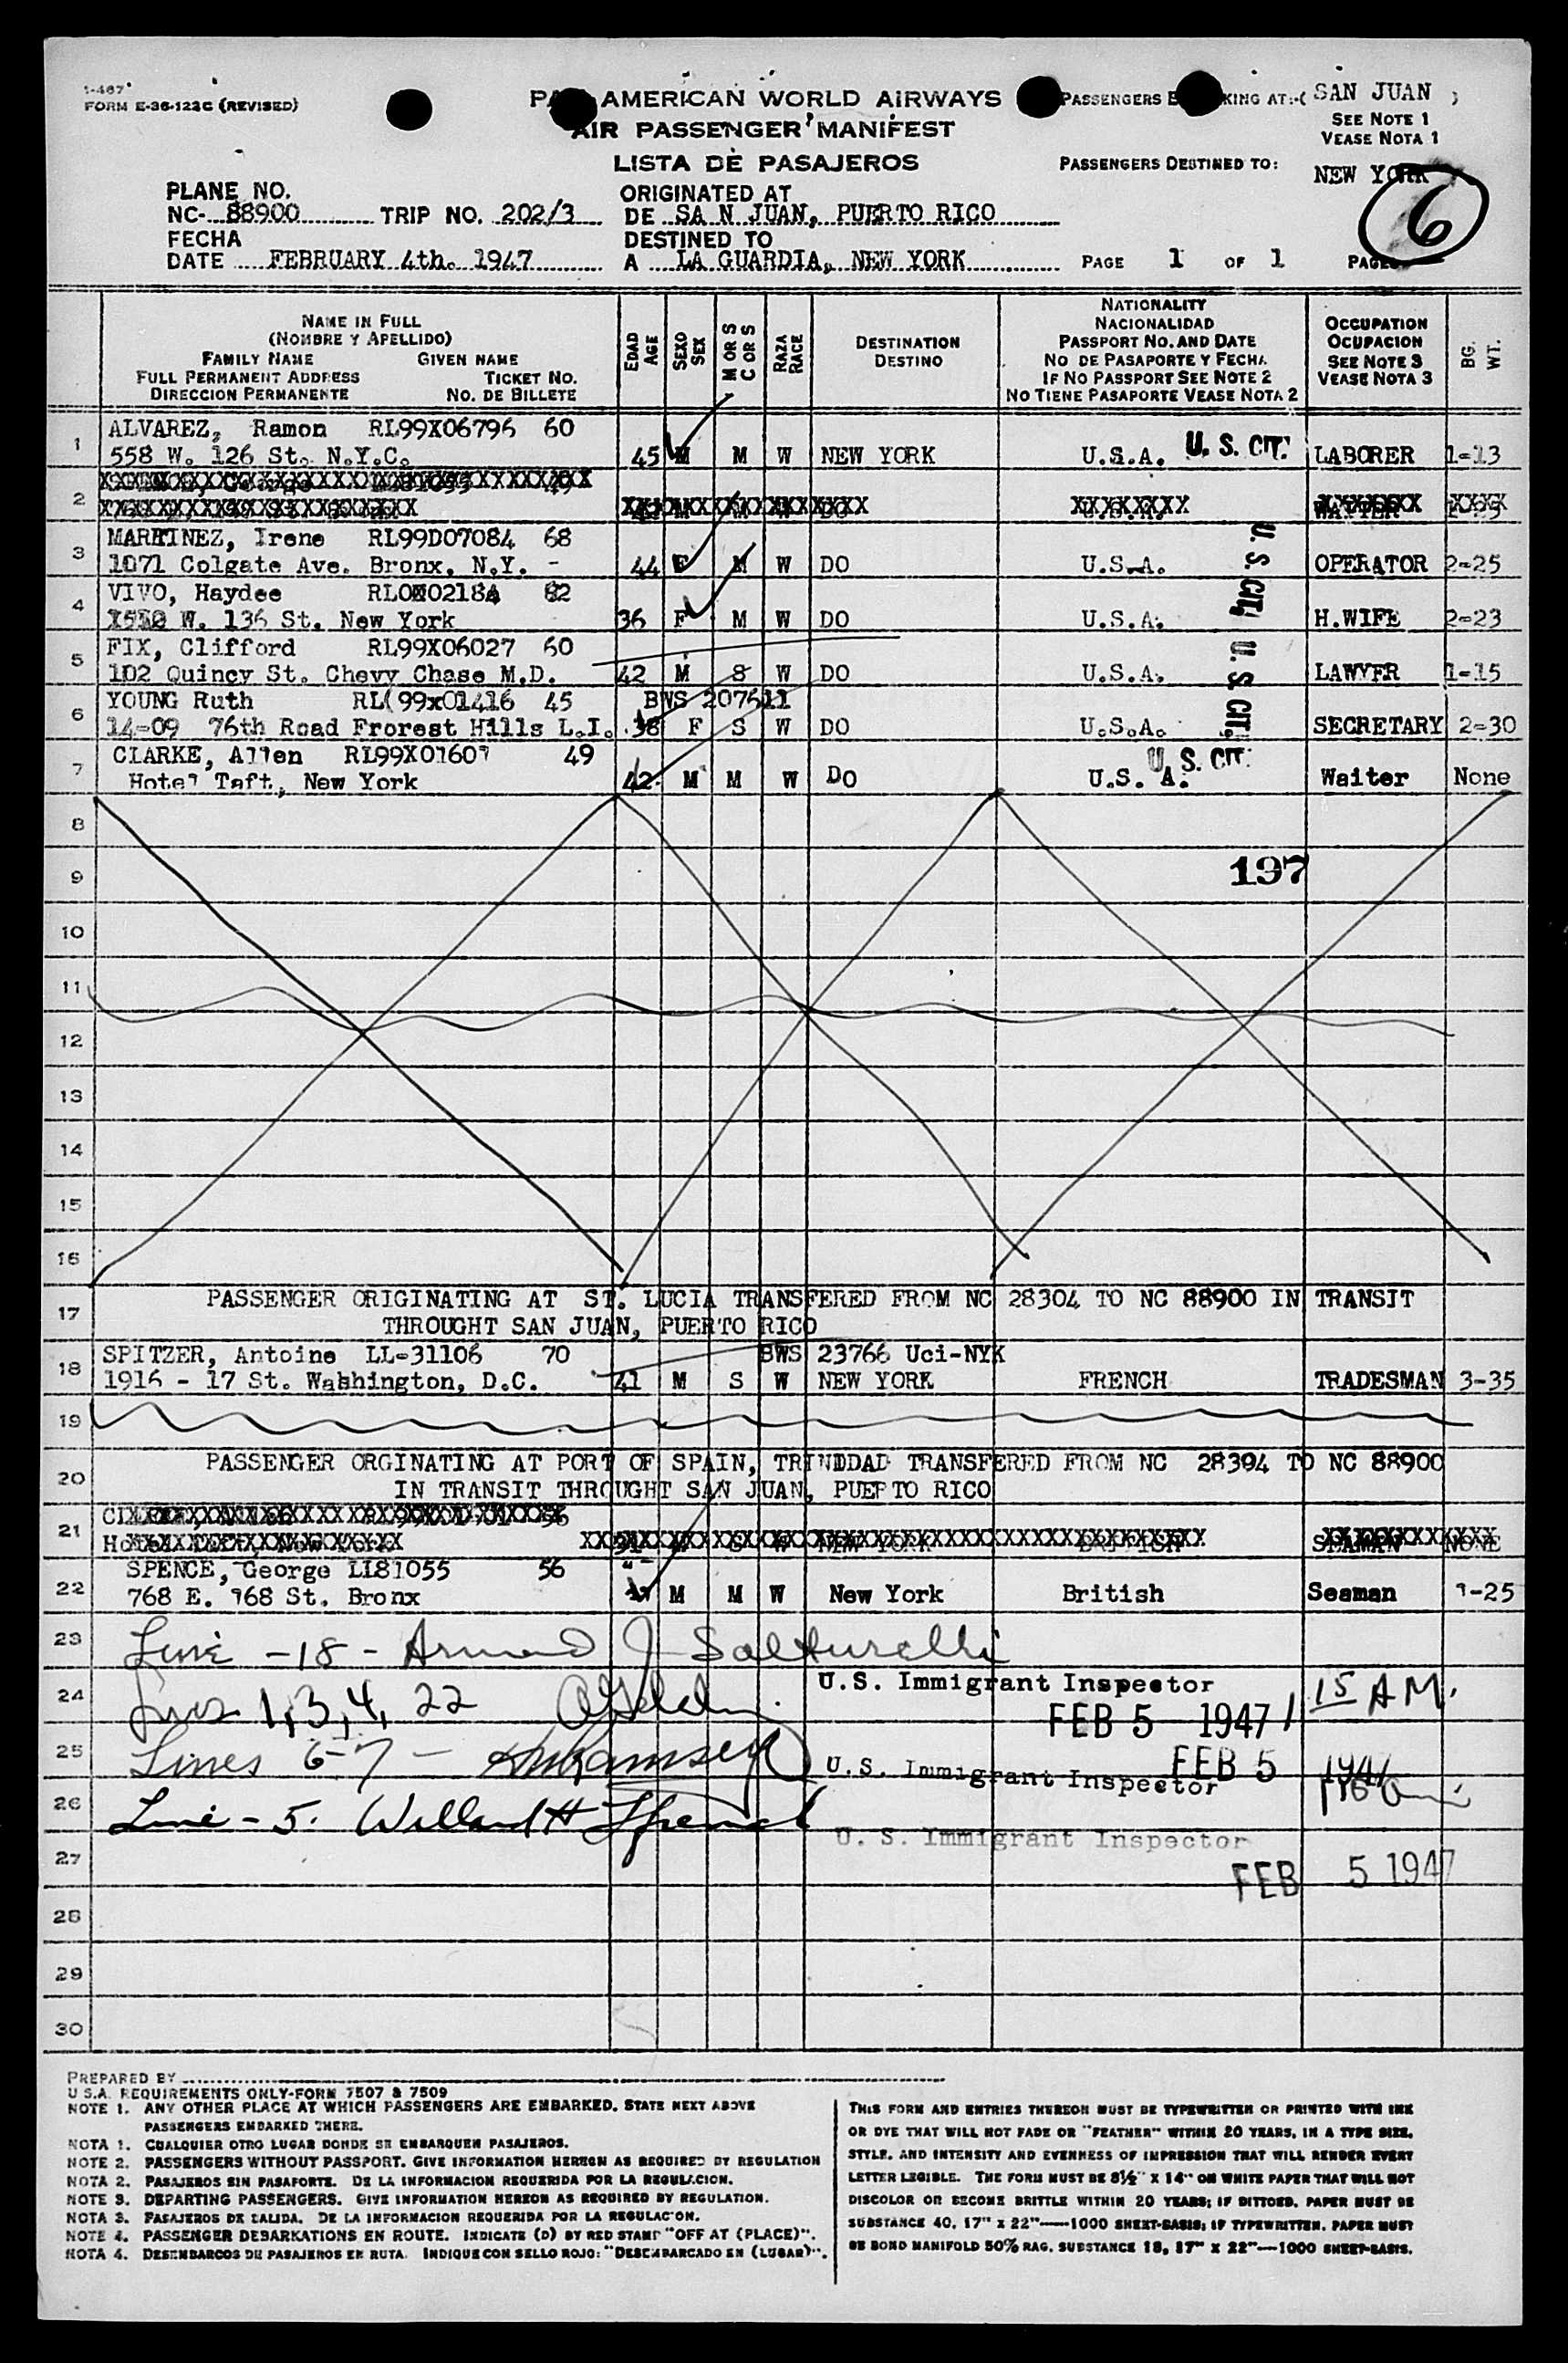 1-467
FORM E-36-122C (REVISED)
AMERICAN WORLD AIRWAYS
PASSENGERS KING AT:-( SAN JUAN )
AIR PASSENGER MANIFEST
SEE NOTE 1
VEASE NOTA 1
LISTA DE PASAJEROS
PASSENGERS DESTINED TO:
NEW YORK
6
PLANE NO.
NC- 88900 TRIP NO. 202/3
ORIGINATED AT
DE SA N JUAN, PUERTO RICO
FECHA
DATE FEBRUARY 4th. 1947
DESTINED TO
A LA GUARDIA, NEW YORK
PAGE 1 OF 1 PAGES
NAME IN FULL
(NOMBRE Y APELLIDO)
FAMILY NAME GIVEN NAME
FULL PERMANENT ADDRESS TICKET NO.
DIRECCION PERMANENTE NO. DE BILLETE
EDAD
AGE
SEXO
SEX
M OR S
C OR S
RAZA
RACE
DESTINATION
DESTINO
NATIONALITY
NACIONALIDAD
PASSPORT NO. AND DATE
NO DE PASAPORTE Y FECHA
IF NO PASSPORT SEE NOTE 2
NO TIENE PASAPORTE VEASE NOTA 2
OCCUPATION
OCUPACION
SEE NOTE 3
VEASE NOTA 3
BG.
WT.
1 ALVAREZ, Ramon RL99X06796 60
558 W. 126 St. N.Y.C. 45 M M W NEW YORK U.S.A. U. S. CIT. LABORER 1-13
2
3 MARTINEZ, Irene RL99D07084 68
1071 Colgate Ave. Bronx, N.Y. - 44 F M W DO U.S.A. U. S. CIT. OPERATOR 2-25
4 VIVO, Haydee 82
W. 136 St. New York 36 F M W DO U.S.A. H.WIFE 2-23
5 FIX, Clifford RL99X06027 60
102 Quincy St. Chevy Chase M.D. 42 M S W DO U.S.A. U. S. CIT. LAWYER 1-15
6 YOUNG Ruth RL(99x01416 45 BWS 207611
14-09 76th Road Frorest Hills L.I. 38 F S W DO U.S.A. SECRETARY 2-30
7 CLARKE, Allen RL99X01607 49
Hotel Taft, New York 42 M M W DO U.S. A. U. S. CIT. Waiter None
8
9 197
10
11
12
13
14
15
16
17 PASSENGER ORIGINATING AT ST. LUCIA TRANSFERED FROM NC 28304 TO NC 88900 IN TRANSIT
THROUGHT SAN JUAN, PUERTO RICO
18 SPITZER, Antoine LL-31106 70 BWS 23766 Uci-NYK
1916 - 17 St. Washington, D.C. 41 M S W NEW YORK FRENCH TRADESMAN 3-35
19
20 PASSENGER ORGINATING AT PORT OF SPAIN, TRINIDDAD TRANSFERED FROM NC 28394 TO NC 88900
IN TRANSIT THROUGHT SAN JUAN, PUERTO RICO
21
22 SPENCE, George LI81055 56
768 E. 168 St. Bronx M M W New York British Seaman 1-25
23 Line - 18 - Armand J Salturelli
24 Lines 1, 3, 4, 22
U.S. Immigrant Inspector
FEB 5 1947 1 15 AM.
25 Lines 6-7 - Ramsey
U.S. Immigrant Inspector
FEB 5 1947
26 Line - 5. Willard H French
U. S. Immigrant Inspector
27
FEB 5 1947
28
29
30
PREPARED BY
U.S.A. REQUIREMENTS ONLY-FORM 7507 & 7509
NOTE 1. ANY OTHER PLACE AT WHICH PASSENGERS ARE EMBARKED. STATE NEXT ABOVE
PASSENGERS EMBARKED THERE.
NOTA 1. CUALQUIER OTRO LUGAR DONDE SE EMBARQUEN PASAJEROS.
NOTE 2. PASSENGERS WITHOUT PASSPORT. GIVE INFORMATION HEREON AS REQUIRED BY REGULATION
NOTA 2. PASAJEROS SIN PASAPORTE. DE LA INFORMACION REQUERIDA POR LA REGULACION.
NOTE 3. DEPARTING PASSENGERS. GIVE INFORMATION HEREON AS REQUIRED BY REGULATION.
NOTA 3. PASAJEROS DE SALIDA. DE LA INFORMACION REQUERIDA POR LA REGULACION.
NOTE 4. PASSENGER DEBARKATIONS EN ROUTE. INDICATE (D) BY RED STAMP "OFF AT (PLACE)".
NOTA 4. DESEMBARCOS DE PASAJEROS EN RUTA. INDIQUE CON SELLO ROJO: "DESEMBARCADO EN (LUGAR)".
THIS FORM AND ENTRIES THEREON MUST BE TYPEWRITTEN OR PRINTED WITH INK
OR DYE THAT WILL NOT FADE OR "FEATHER" WITHIN 20 YEARS, IN A TYPE SIZE,
STYLE, AND INTENSITY AND EVENNESS OF IMPRESSION THAT WILL RENDER EVERY
LETTER LEGIBLE. THE FORM MUST BE 8½" X 14" ON WHITE PAPER THAT WILL NOT
DISCOLOR OR BECOME BRITTLE WITHIN 20 YEARS; IF DITTOED, PAPER MUST BE
SUBSTANCE 40, 17" X 22"—1000 SHEET-BASIS; IF TYPEWRITTEN, PAPER MUST
BE BOND MANIFOLD 50% RAG, SUBSTANCE 18, 17" X 22"—1000 SHEET-BASIS.